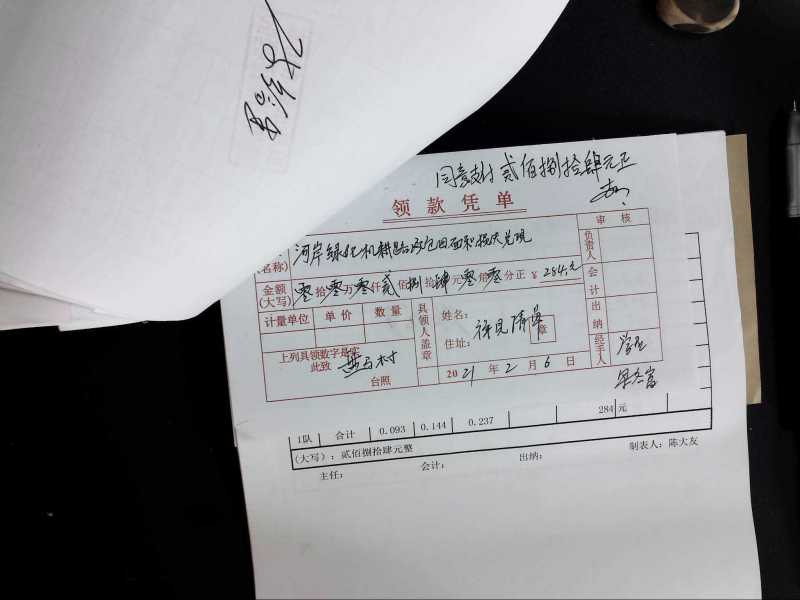 同意支付 贰佰捌拾肆元正
领款凭单
(名称) 河岸绿化机耕路改包田面积损失兑现
审核
负责人
金额(大写) 零拾零万零仟贰佰捌拾肆元零角零分正 ￥284.元
会计
计量单位 单价 数量
具领人盖章
姓名:
住址:
章
出纳
上列具领数字是实
此致
台照
2021年2月6日
经手人
1队 合计 0.093 0.144 0.237 284 元
(大写): 贰佰捌拾肆元整
主任: 会计: 出纳: 制表人: 陈大友